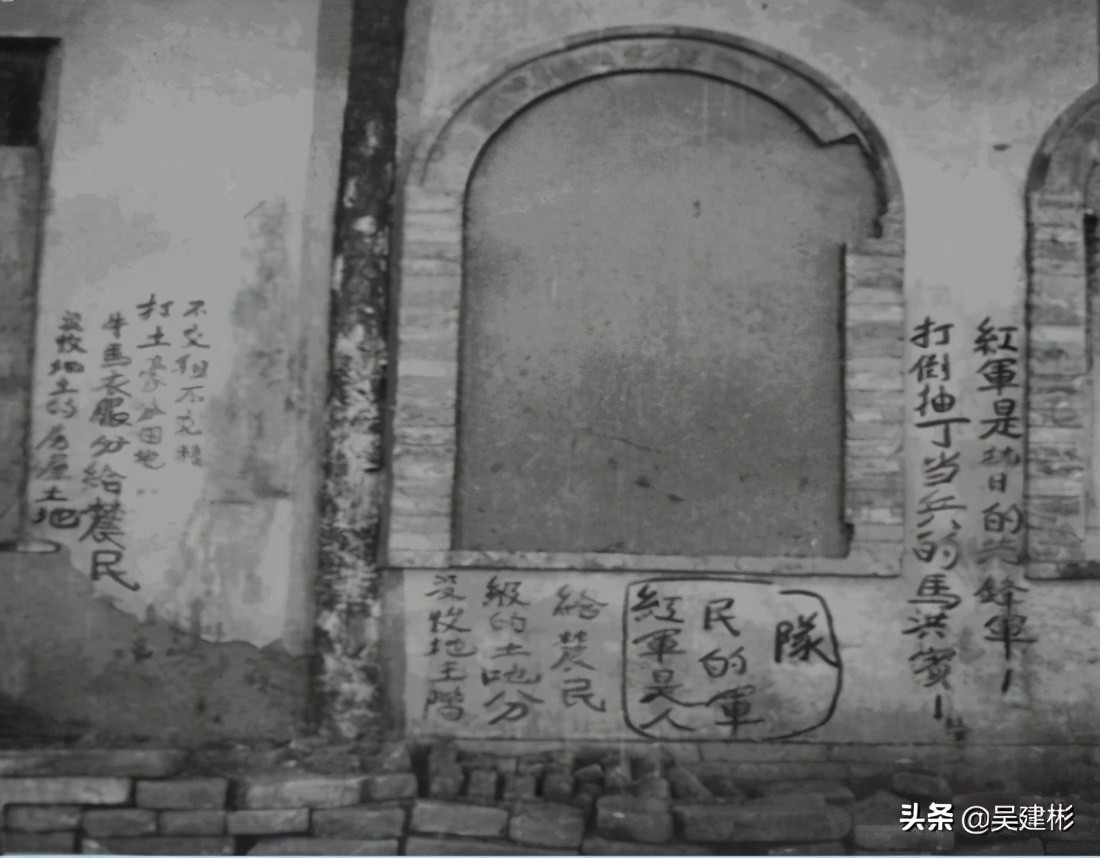 没收地主的房屋土地
牛馬衣服分給農民
打土豪分田地
不交租不完粮
没收地主階
級的土地分
給農民
紅軍是人
民的軍
隊
紅軍是抗日的先鋒軍！
打倒抽丁当兵的馬洪賓！
头条 @吴建彬